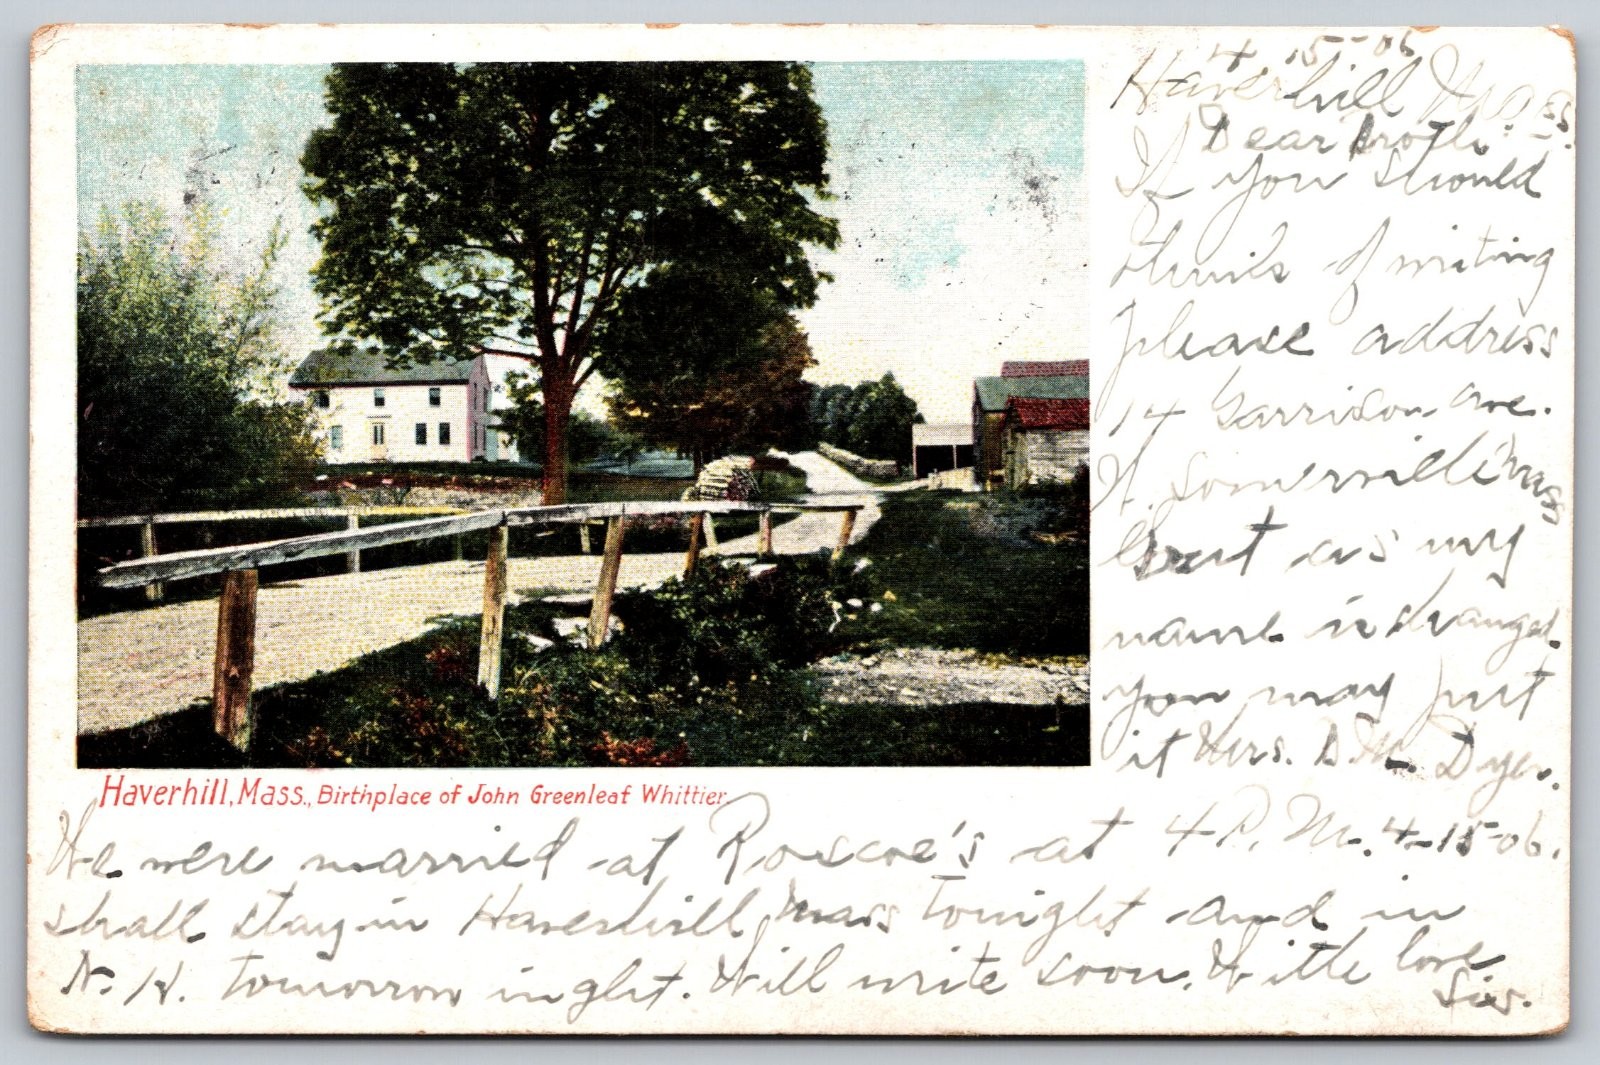 4-15-06
Haverhill Mass.
Dear Broth.
If you should
think of writing
please address
14 Garrison Ave.
W. Somerville Mass
but as my
name is changed
you may put
it Mrs. D. M. Dyer.
Haverhill, Mass., Birthplace of John Greenleaf Whittier.
We were married at Roscoe's at 4 P. M. 4-15-06.
shall stay in Haverhill, Mass tonight and in
N. H. tomorrow night. Will write soon. With love.
Sis.